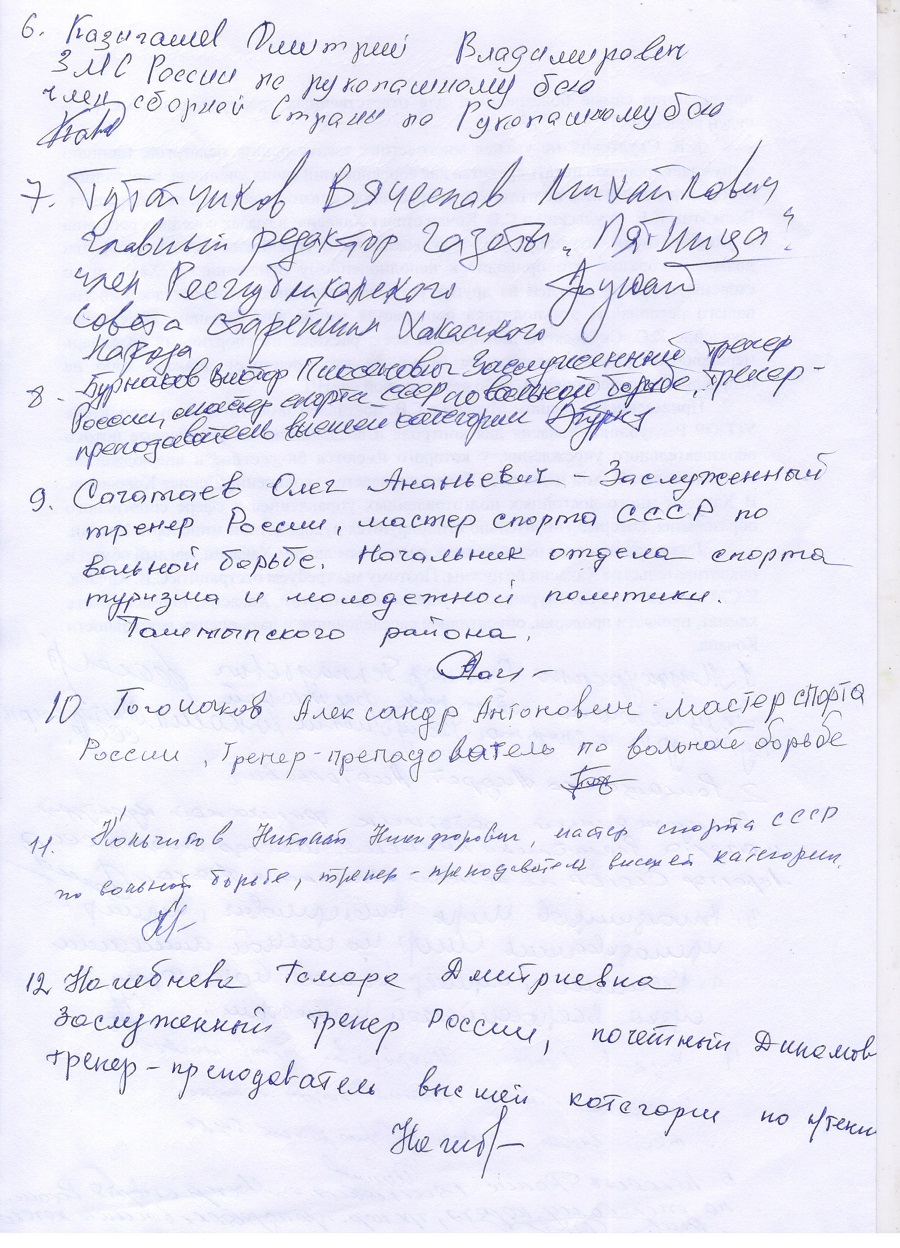 6. Казигашев Дмитрий Владимирович
ЗМС России по рукопашному бою
член сборной Страны по Рукопашному бою
7. Тутатчиков Вячеслав Михайлович
главный редактор газеты „Пятница"
член Республиканского
Совета старейшин Хакасского
народа
8. Бурнаков Виктор Заслуженный тренер
России, мастер спорта СССР по вольной борьбе, тренер-
преподаватель высшей категории
9. Сагатаев Олег Ананьевич Заслуженный
тренер России, мастер спорта СССР по
вольной борьбе. Начальник отдела спорта
туризма и молодежной политики.
Таштыпского района.
10 Тогочаков Александр Антонович - мастер спорта
России, Тренер-преподаватель по вольной борьбе
11. Николай Никифорович мастер спорта СССР
по вольной борьбе, тренер-преподаватель высшей категории.
12. Нагибнева Тамара Дмитриевна
Заслуженный тренер России, почётный Динамов
тренер-преподаватель высшей категории по